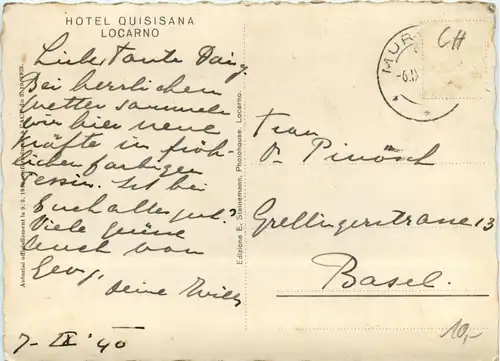 HOTEL QUISISANA
LOCARNO
Liebe Tante Daisy.
Bei herrlichem
Wetter sammeln
wir hier neue
Kräfte im fröh-
lichen farbigen
Tessin. Ist bei
Euch alles gut?
Viele grüsse
auch von
Georg.
Deine Willy
7. IX. 40
Edizione E. Steinemann, Photohouse, Locarno.
MUR
CH
Frau
Dr. Pinösch
Grellingerstrasse 13
Basel.
10,-